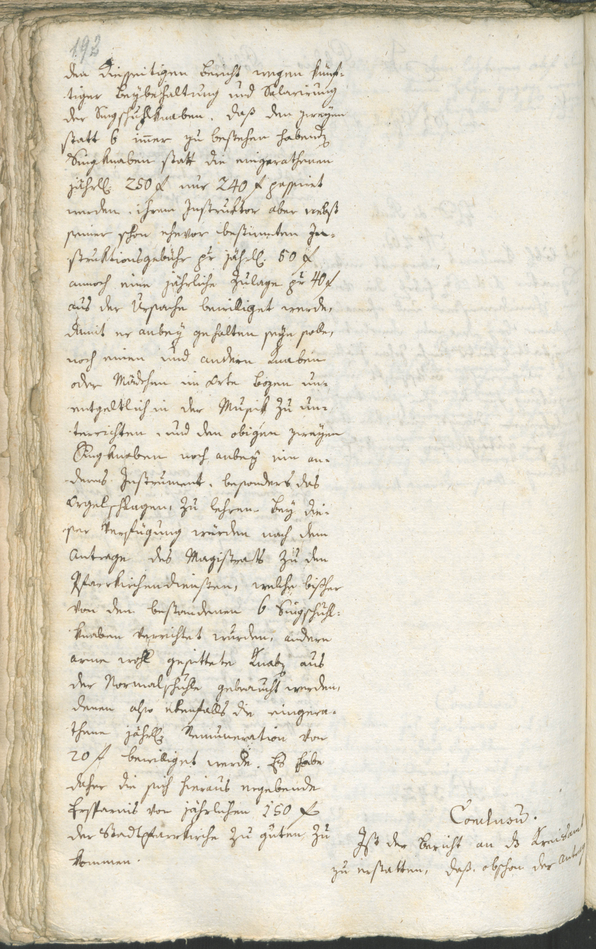 192
den diesseitigen Bericht wegen künf-
tiger Beybehaltung und Salarirung
der Singschuhlknaben, daß den zweyen
statt 6 immer zu bestehen habend
Singknaben statt die eingerathenen
jährl. 250 f nur 240 f passirt
werden, ihrem Instruktor aber nebst
seiner schon ehevor bestimmten In-
struktionsgebühr pr jährl. 50 f
annoch eine jährliche Zulage pr 40 f
aus der Ursache bewilliget werde,
damit er anbey gehalten seyn solle,
noch einen und andern Knaben
oder Mädchen im Orte Bozen un-
entgeltlich in der Musik zu un-
terrichten, und den obigen zweyen
Singknaben noch anbey ein an-
deres Instrument, besonders das
Orgelschlagen, zu lehren. Bey die-
ser Verfügung würden nach dem
Antrage des Magistrats zu den
Pfarrkirchendiensten, welche bisher
von den bestandenen 6 Singschuhl-
knaben verrichtet wurden, andere
arme wohl gesittete Knab aus
der Normalschuhle gebraucht werden,
denen also ebenfalls die eingera-
thene jährl. Remuneration von
20 f bewilliget werde. Es habe
daher die sich hieraus ergebende
Ersparnis von jährlichen 150 f
der Stadtpfarrkirche zu guten zu
kommen.
Conclusum.
Ist der Bericht an d Kreisamt
zu erstatten, daß, obschon der